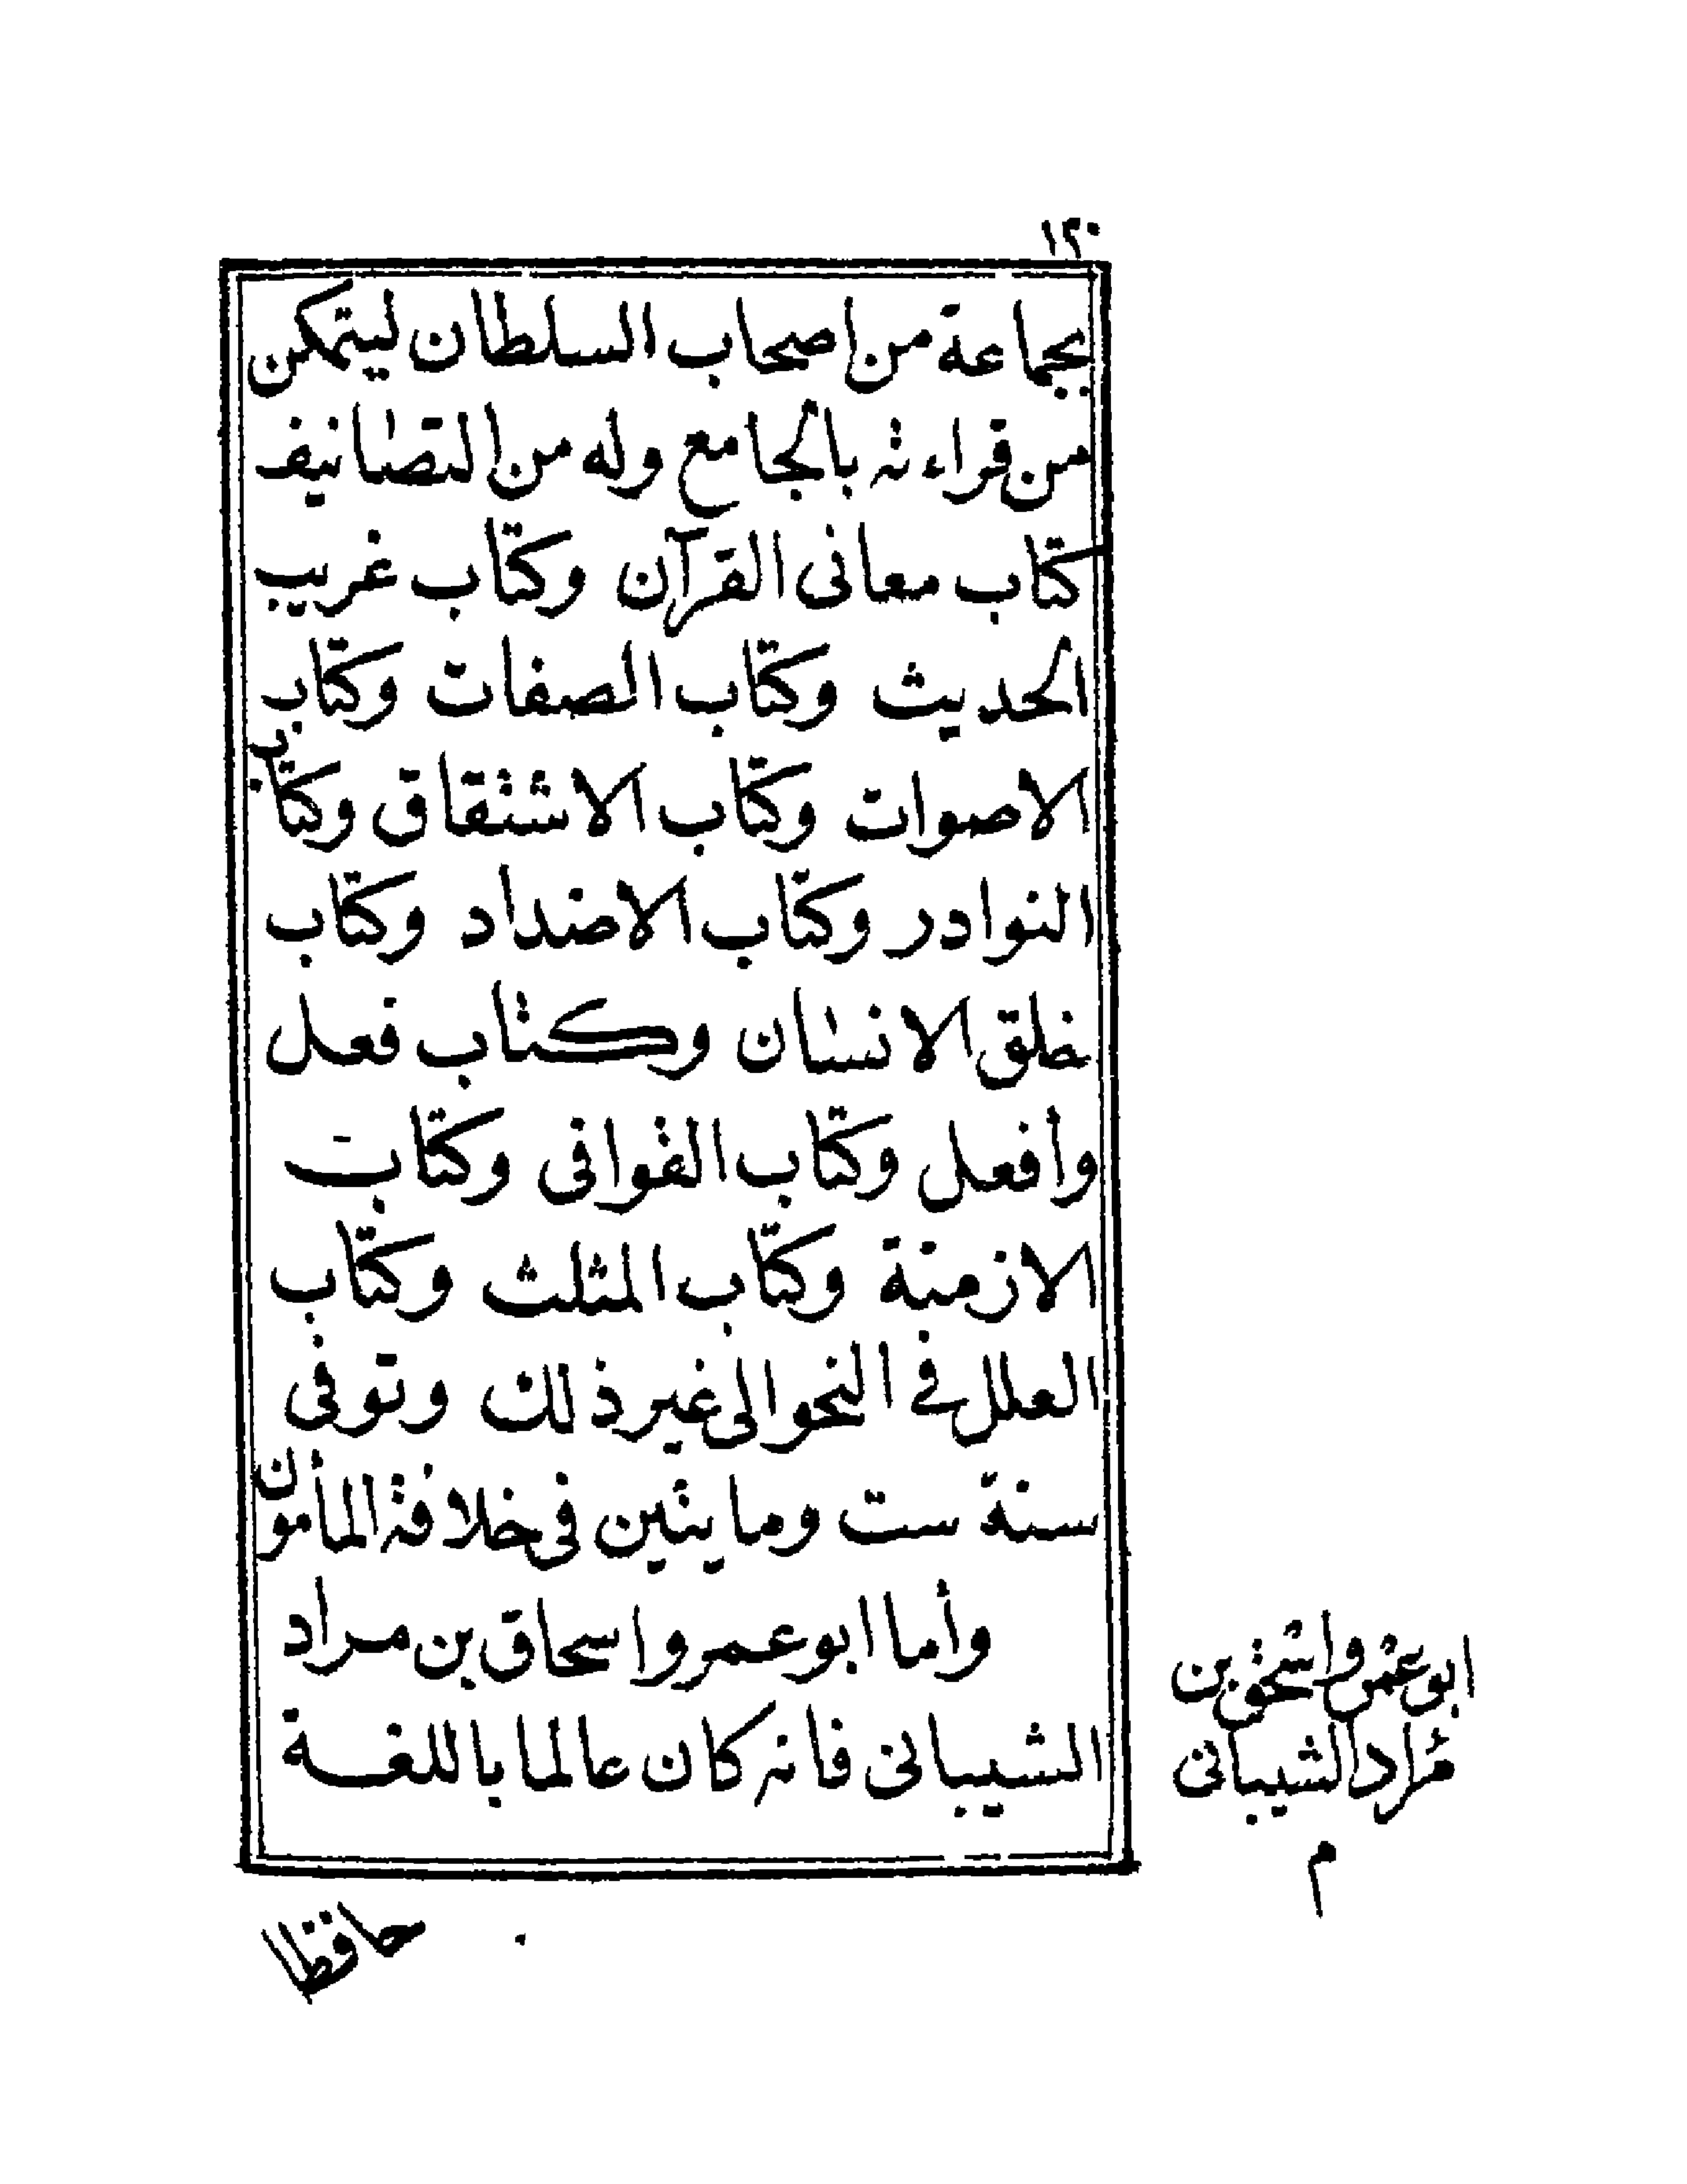 ١٢٠
بجماعة من اصحاب السلطان ليتمكن
من قراءته بالجامع وله من التصانيف
كتاب معانى القرآن وكتاب غريب
الحديث وكتاب الصفات وكتاب
الاصوات وكتاب الاشتقاق وكتاب
النوادر وكتاب الاضداد وكتاب
خلق الانسان وكتاب فعل
وأفعل وكتاب القوافى وكتاب
الازمنة وكتاب المثلث وكتاب
العلل فى النحو الى غير ذلك وتوفى
سنة ست ومايتين فى خلافة المأمون
وأما ابو عمرو اسحاق بن مراد
الشيبانى فانه كان عالما باللغة
ابو عمرو اسحق بن
مراد الشيبانى
م
حافظا